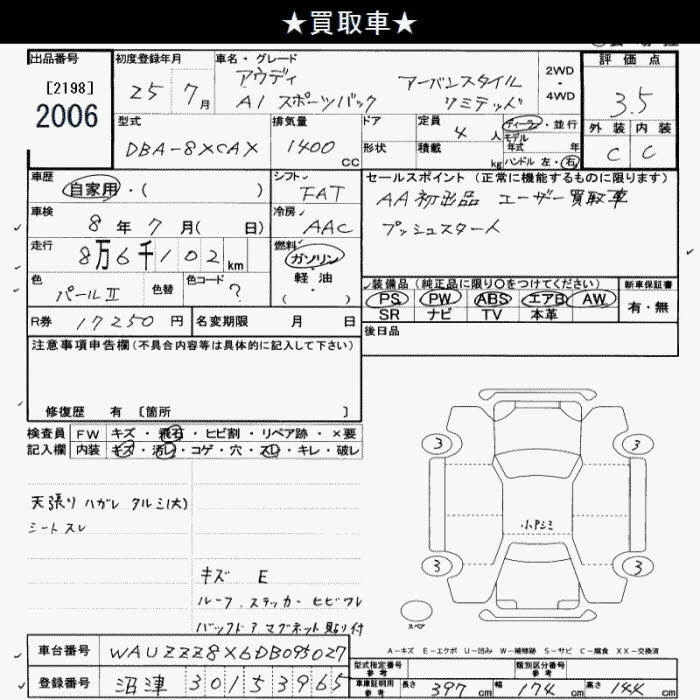 ★買取車★
出品番号
[2198]
2006
初度登録年月
25 7月
車名・グレード
アウディ アーバンスタイル
A1 スポーツバック リミテッド
2WD
・
4WD
評価点
3.5
外装 内装
C C
型式
DBA-8XCAX
排気量
1400
cc
ドア
形状
定員
4 人
積載
kg
ディーラー・並行
モデル
年式 年
ハンドル 左・右
車歴
自家用・( )
シフト
FAT
車検
8年7月( 日)
冷房
AAC
走行
8万6千102km
燃料
ガソリン
軽・油
( )
色
パールⅡ
色替
色コード
?
R券 17250 円
名変期限 月 日
セールスポイント (正常に機能するものに限ります)
AA初出品 ユーザー買取車
プッシュスタート
装備品 (純正品に限り○をつけてください)
PS PW ABS エアB AW
SR ナビ TV 本革
新車保証書
有・無
後日品
注意事項申告欄 (不具合内容等は具体的に記入して下さい)
修復歴 有 [箇所 ]
検査員
記入欄
FW キズ・飛石・ヒビ割・リペア跡・×要
内装 キズ・汚レ・コゲ・穴・スレ・キレ・破レ
天張り ハガレ タルミ(大)
シートスレ
キズ E
ルーフ ステッカー ヒビワレ
バックドア マグネット貼り付
3
3
小Pシミ
3
3
スペア
A-キズ E-エクボ U-凹み W-補修跡 S-サビ C-腐食 XX-交換済
車台番号 WAUZZZ8X6DB095027
登録番号 沼津 301 5 3965
型式指定番号
参考
類別区分番号
参考
車庫証明用
参考
長さ 397 cm 幅 174 cm 高さ 144 cm